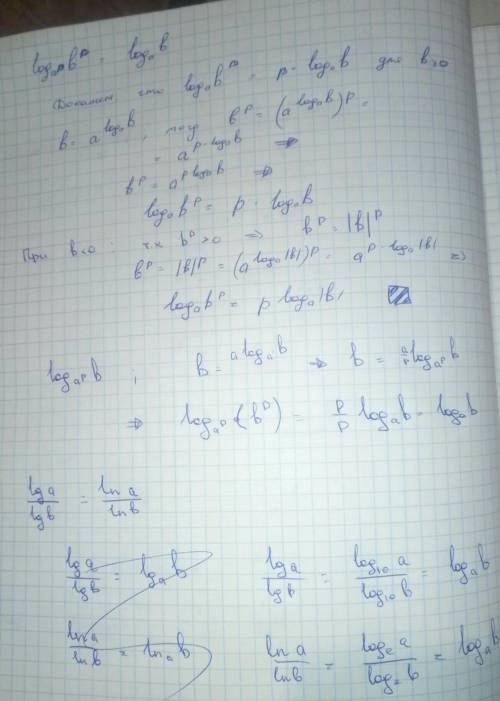 log_{a^p} b^p = log_a b
Докажем, что log_a b^p = p · log_a b для b>0
b = a^{log_a b}, тогда b^p = (a^{log_a b})^p =
= a^{p·log_a b} ⇒
b^p = a^{p log_a b} ⇒
log_a b^p = p · log_a b
При b<0 : т.к b^p >0 ⇒ b^p = |b|^p
b^p = |b|^p = (a^{log_a |b|})^p = a^{p · log_a |b|} ⇒
log_a b^p = p log_a |b|
log_{a^p} b ; b = a^{log_a b} ⇒ b =
⇒ log_{a^p} (b^p) = p/p log_a b = log_a b
lg a / lg b = ln a / ln b
lg a / lg b = lg_a b lg a / lg b = log_{10} a / log_{10} b = log_a b
ln a / ln b = ln_a b ln a / ln b = log_e a / log_e b = log_a b